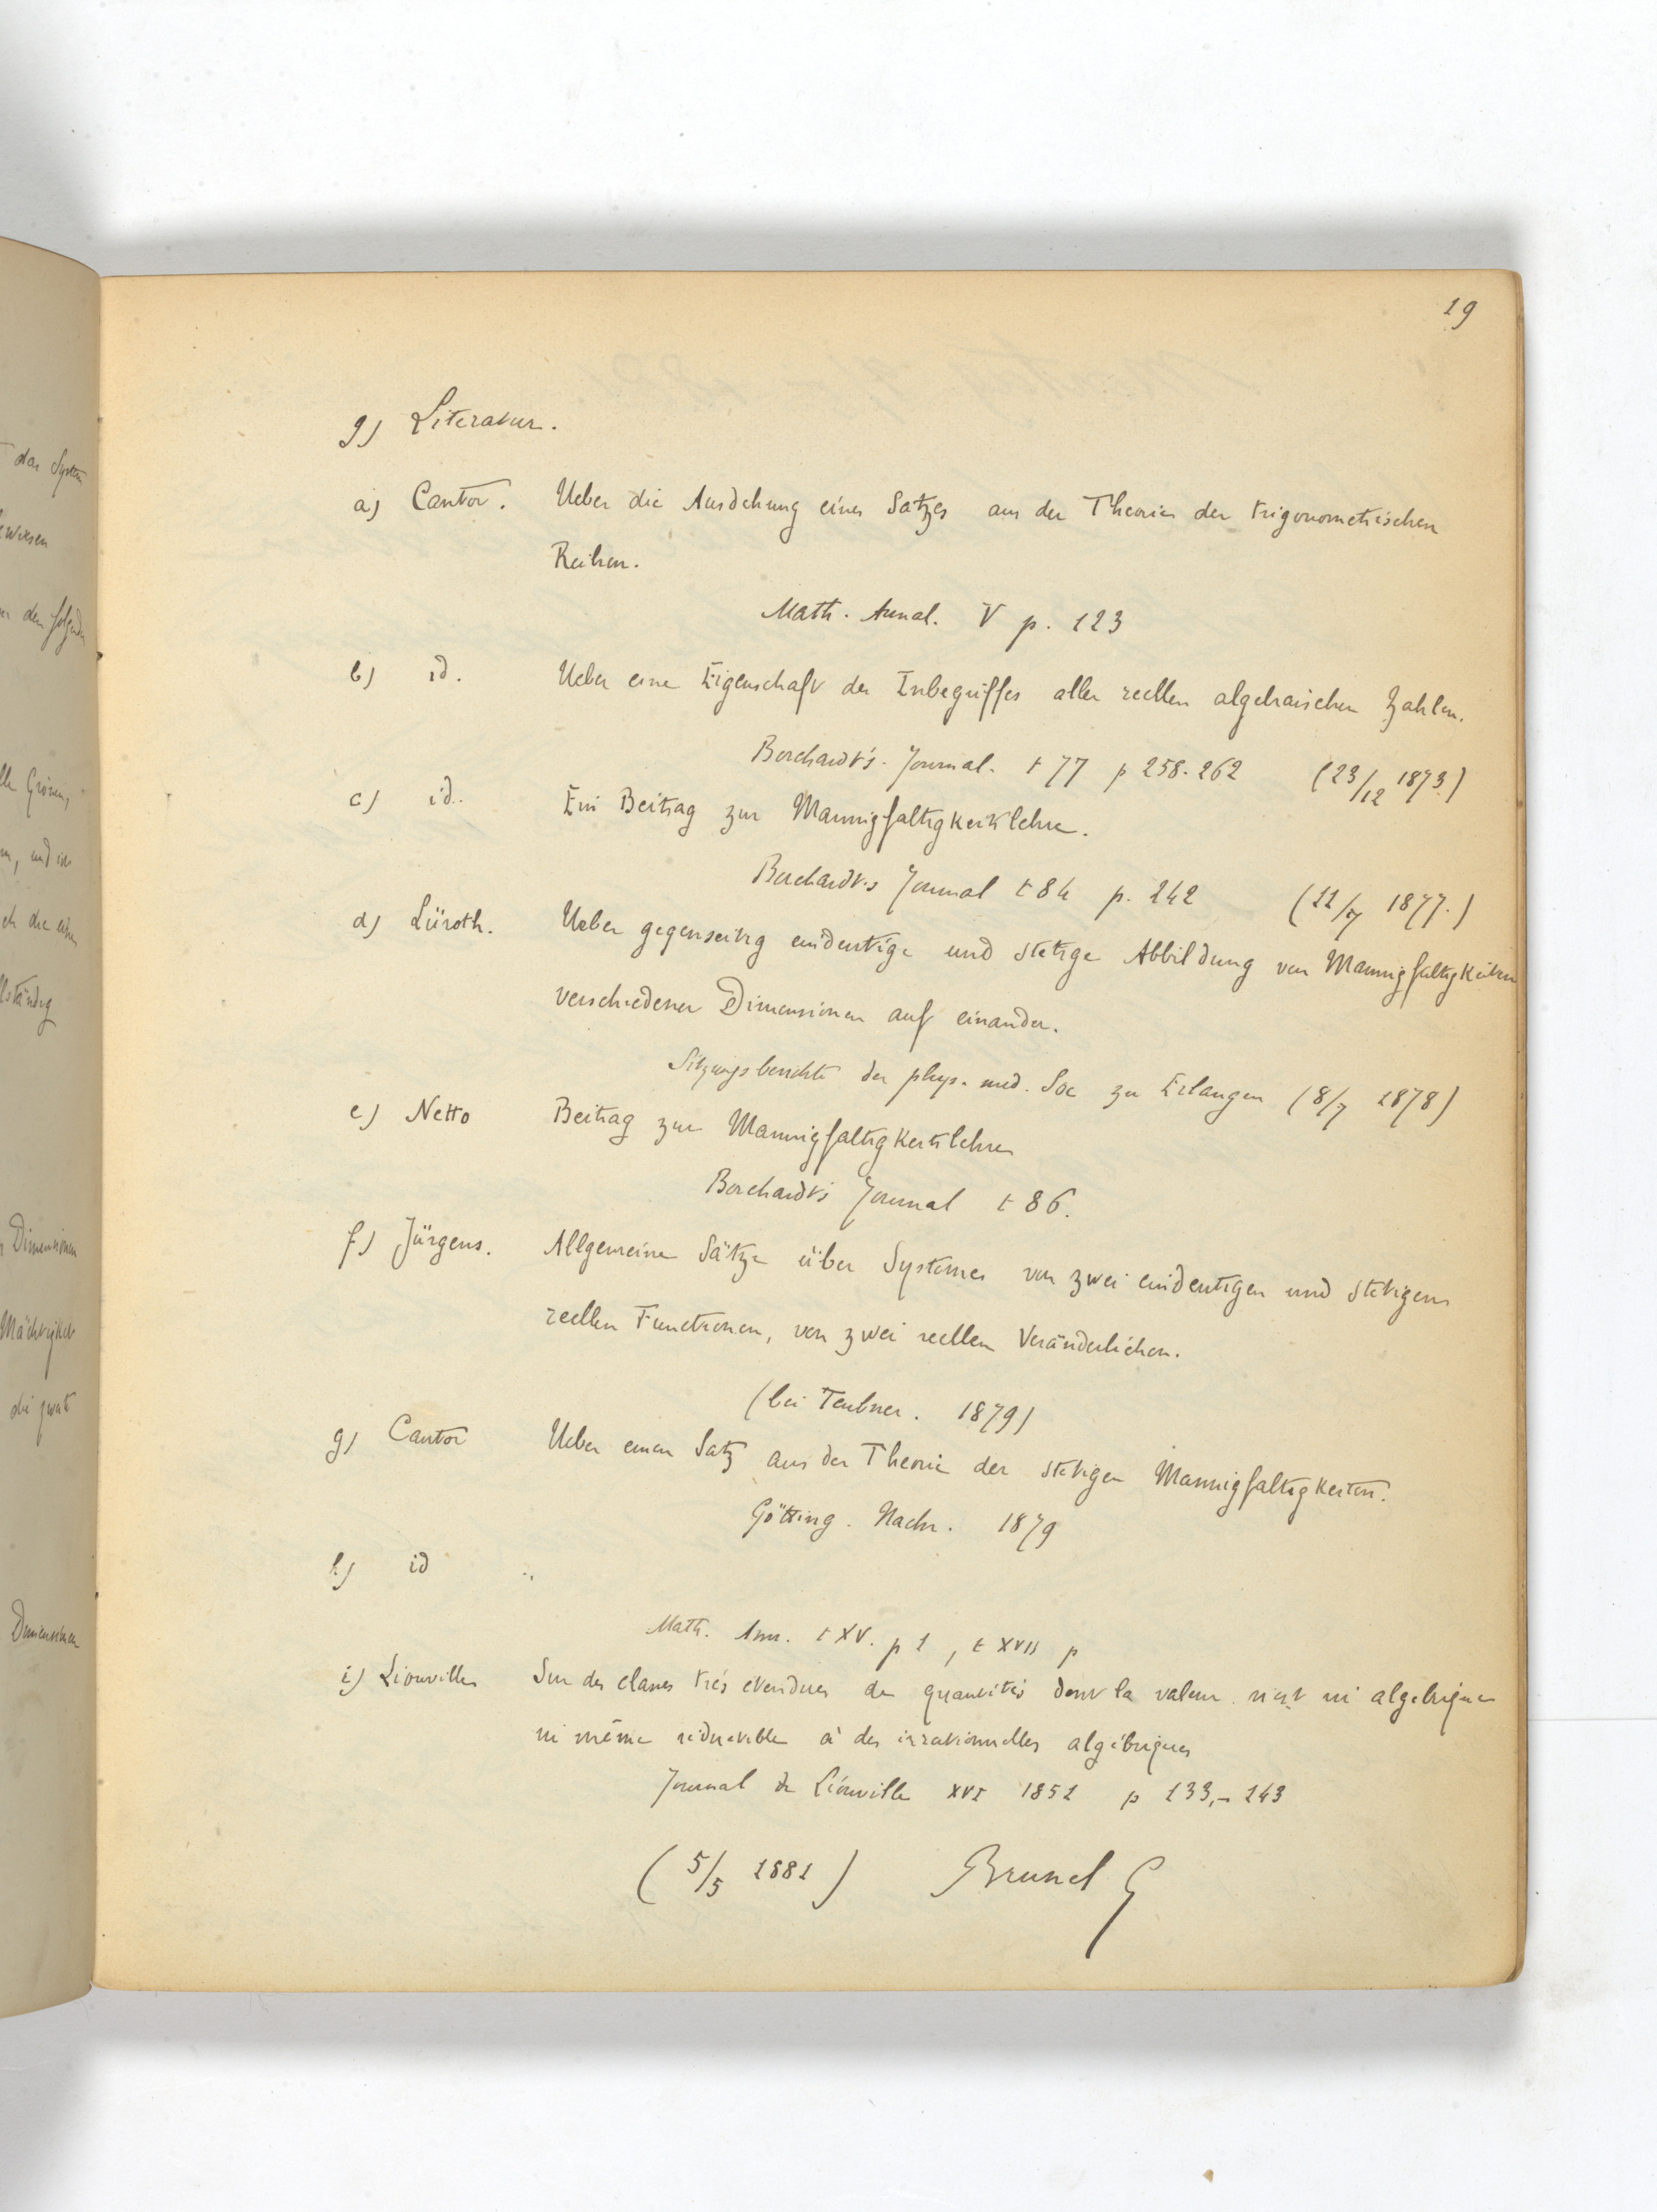 19
g) Literatur.
a) Cantor. Ueber die Ausdehung eines Satzes aus der Theorie der trigonometrischen
Reihen.
Math. Annal. V p. 123
b) id. Ueber eine Eigenschaft des Inbegriffes aller reellen algebraischen Zahlen.
Borchardt's Journal. t 77 p 258-262 (23/12 1873)
c) id. Ein Beitrag zur Mannigfaltigkeitslehre.
Borchardt's Journal t 84 p. 242 (11/7 1877.)
d) Lüroth. Ueber gegenseitig eindeutige und stetige Abbildung von Mannigfaltigkeiten
verschiedener Dimensionen auf einander.
Sitzungsberichte der phys. med. Soc zu Erlangen (8/7 1878)
e) Netto Beitrag zur Mannigfaltigkeitslehre
Borchardt's Journal t 86.
f) Jürgens. Allgemeine Sätze über Systeme von zwei eindeutigen und stetigen
reellen Functionen, von zwei reellen Veränderlichen.
(bei Teubner. 1879)
g) Cantor Ueber einen Satz aus der Theorie der stetigen Mannigfaltigkeiten.
Götting. Nachr. 1879
h) id ..
Math. Ann. t XV. p 1, t XVII p
i) Liouville Sur des classes très étendues de quantités dont la valeur n'est ni algébrique
ni même réductible à des irrationnelles algébriques
Journal de Liouville XVI 1851 p 133,- 143
(5/5 1881) Brunel G
das System
dem folgenden
Grössen,
Dimensionen
Mächtigkeit
die zweite
Dimensionen